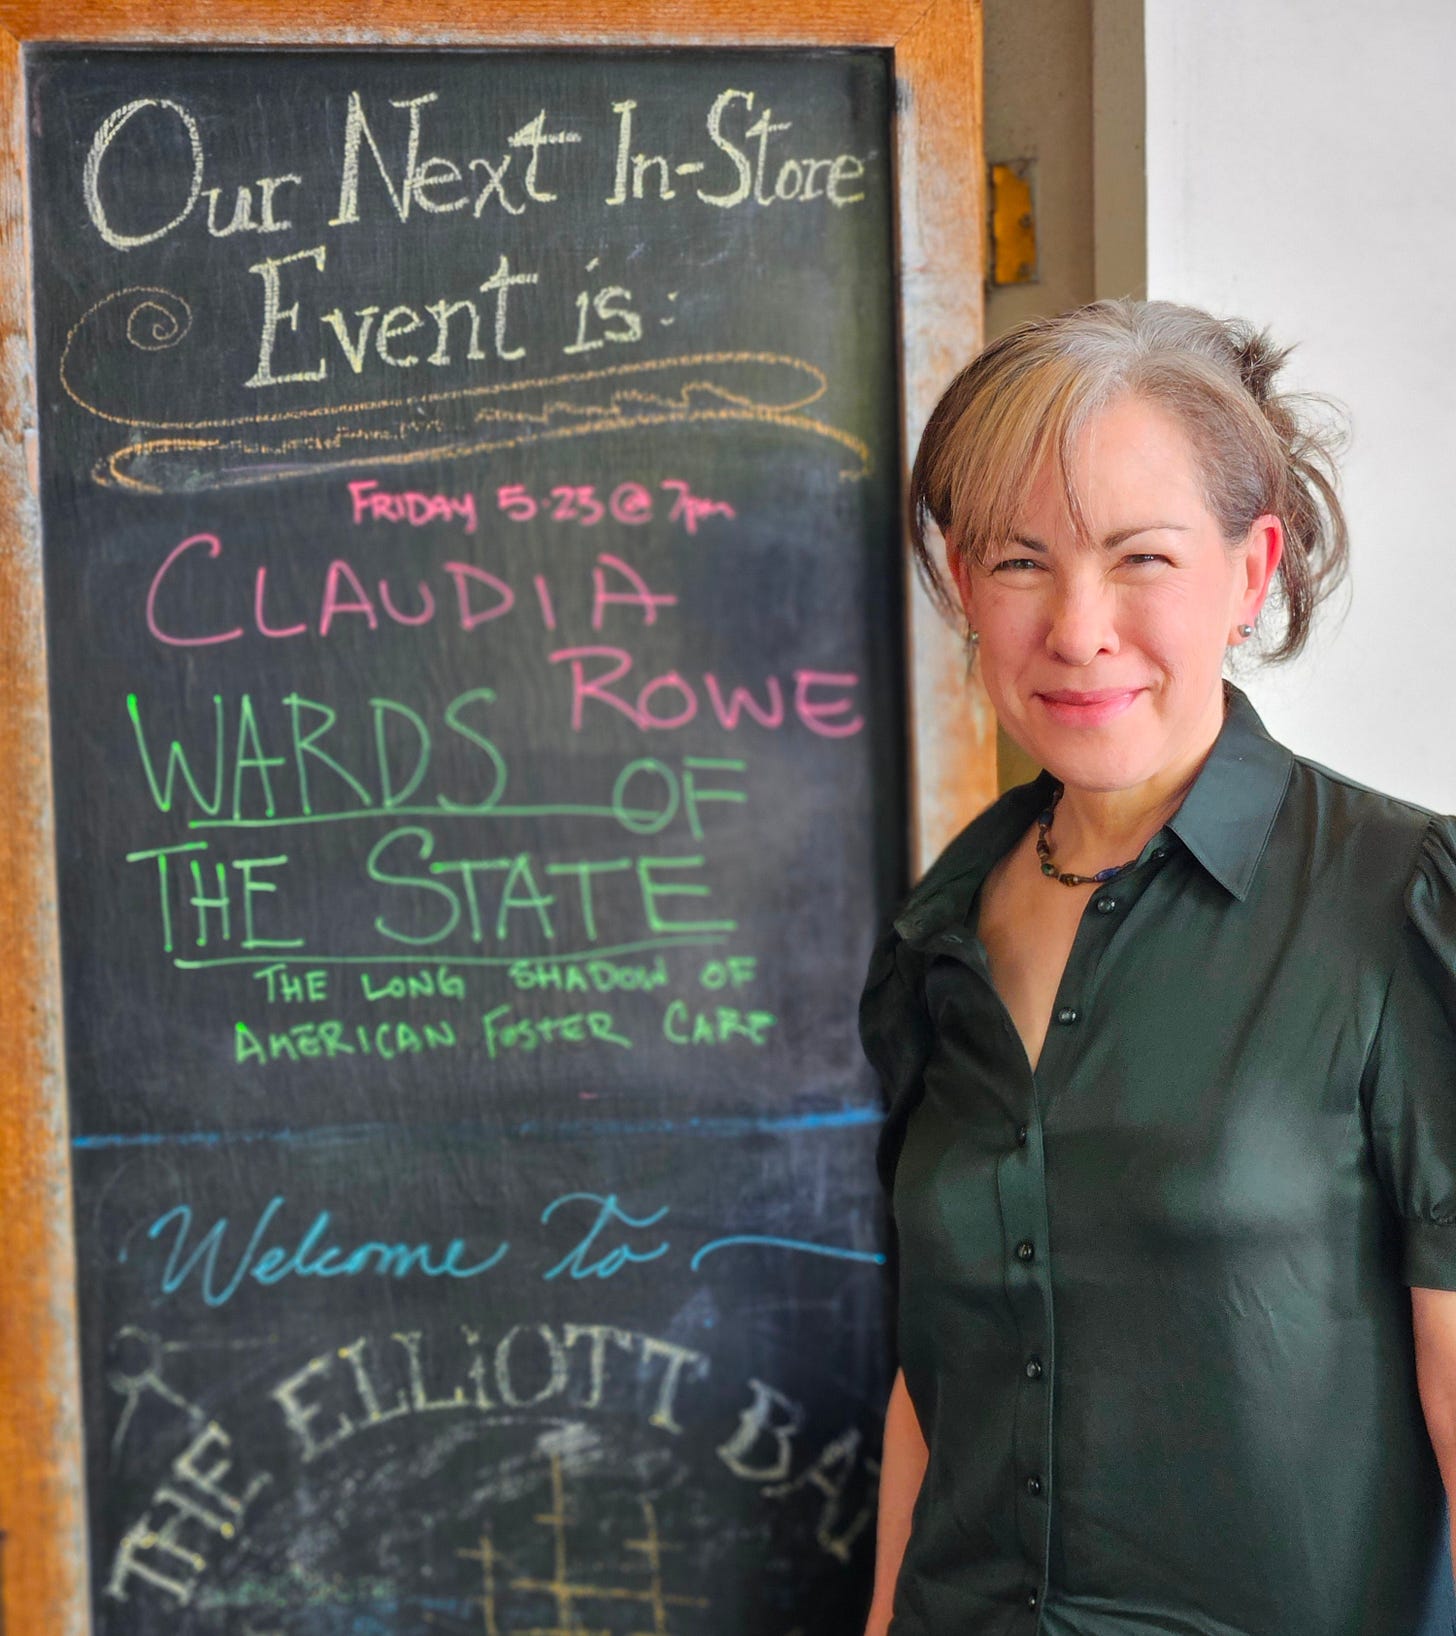 Our Next In-Store
Event is:
FRIDAY 5·23 @ 7pm
CLAUDIA
ROWE
WARDS OF
THE STATE
THE LONG SHADOW OF
AMERICAN FOSTER CARE
Welcome to
THE ELLiOTT BAY